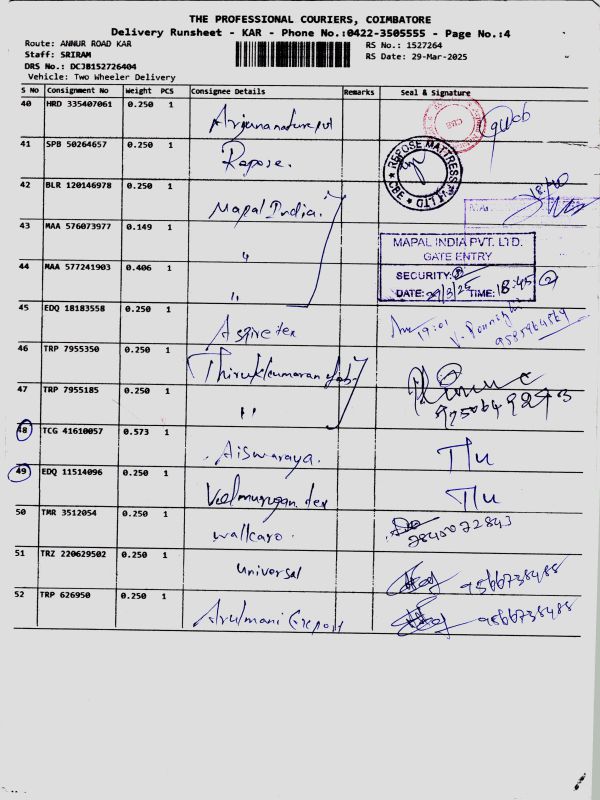 THE PROFESSIONAL COURIERS, COIMBATORE
Delivery Runsheet - KAR - Phone No.:0422-3505555 - Page No.:4
Route: ANNUR ROAD KAR
RS No.: 1527264
Staff: SRIRAM
RS Date: 29-Mar-2025
DRS No.: DCJB152726404
Vehicle: Two Wheeler Delivery
S No Consignment No Weight PCS Consignee Details Remarks Seal & Signature
40 HRD 335407061 0.250 1
41 SPB 50264657 0.250 1 Repose.
REPOSE MATTRESS PVT LTD CBE
42 BLR 120146978 0.250 1 Mapal India.
43 MAA 576073977 0.149 1 "
MAPAL INDIA PVT. LTD.
GATE ENTRY
44 MAA 577241903 0.406 1 "
SECURITY:
DATE: 29/3/25 TIME: 18:45
45 EDQ 18183558 0.250 1 19:01
46 TRP 7955350 0.250 1 Thirukkumaran
47 TRP 7955185 0.250 1 "
48 TCG 41610057 0.573 1 Aiswaraya.
49 EDQ 11514096 0.250 1 Velmurugan tex
50 TMR 3512054 0.250 1 wallcaro
51 TRZ 220629502 0.250 1 universal 9566738488
52 TRP 626950 0.250 1 Arulmani Export 9566738488